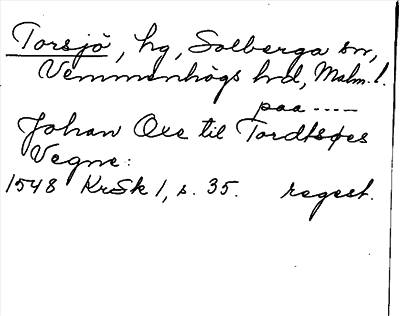 Torsjö, hg, Solberga sn,
Vemmenhögs hd, Malm. l.
paa ----
Johan Oxe til Tordtsøes
Vegne:
1548 KrSk 1, s. 35. regest.